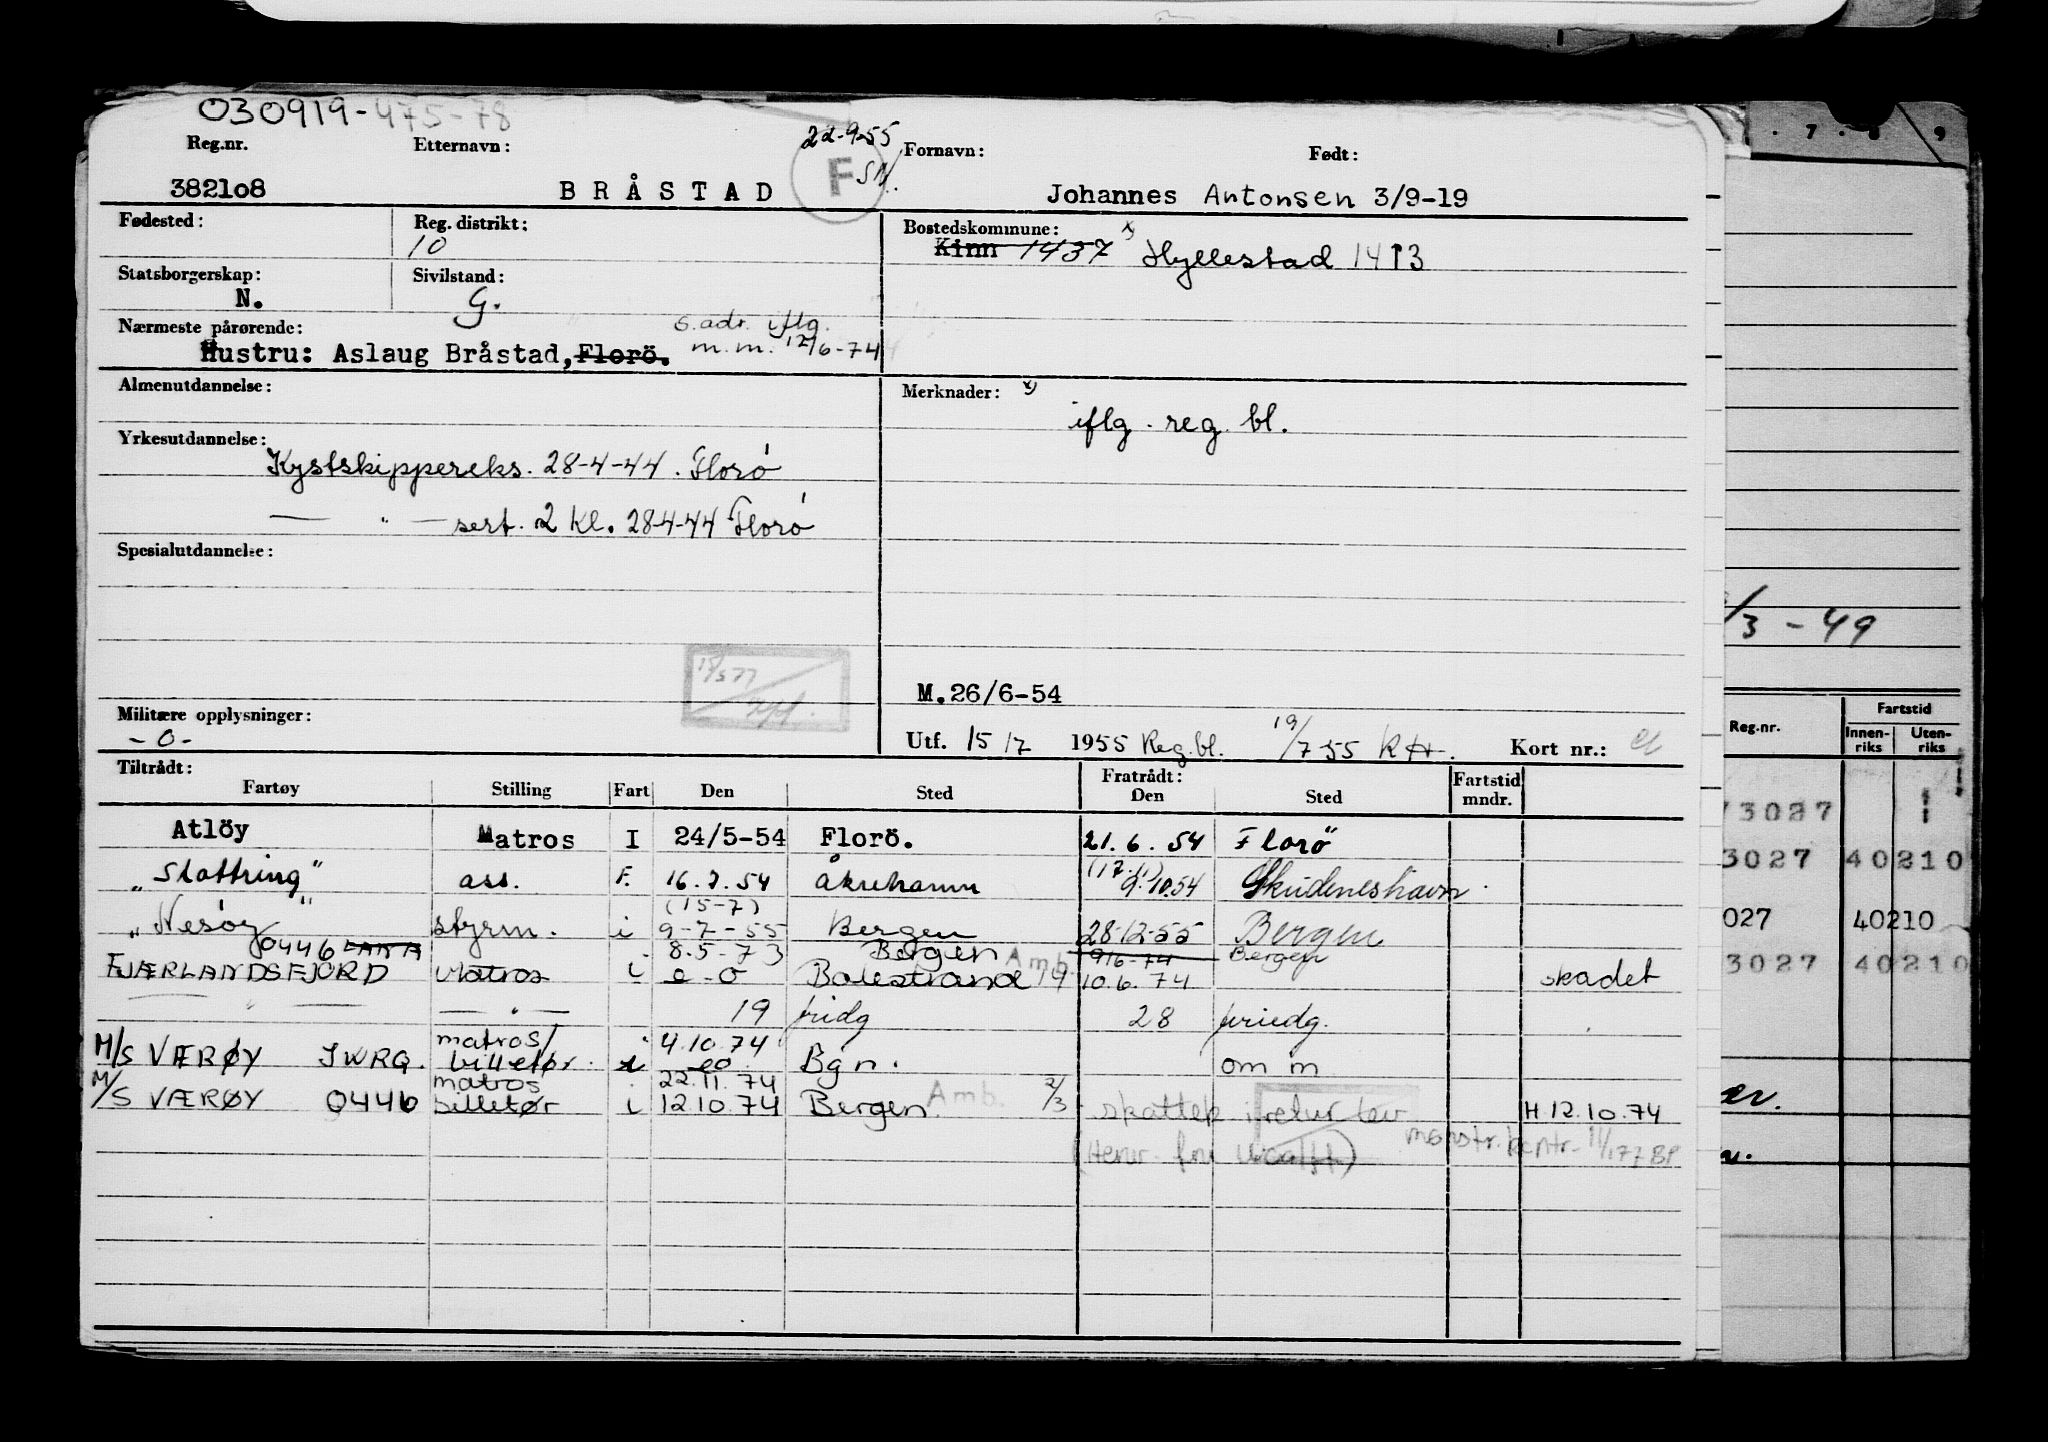 030919-475-78
Reg.nr. Etternavn: 22-9-55 Fornavn: Født:
382108 BRÅSTAD F SM. Johannes Antonsen 3/9-19
Fødested: Reg. distrikt: Bostedskommune: x)
10 Kinn 1437 Hyllestad 1413
Statsborgerskap: Sivilstand:
N. G.
Nærmeste pårørende: s.adr. iflg.
Hustru: Aslaug Bråstad, Florö. m.m. 12/6-74
Almenutdannelse: Merknader: x)
iflg. reg. bl.
Yrkesutdannelse:
Kystskippereks. 28-4-44. Florö
— " — sert. 2 kl. 28-4-44 Florö
Spesialutdannelse:
15/5 77
M.26/6-54
Militære opplysninger:
-0- Utf. 15/7 1955 Reg.bl. 19/7-55 Kort nr.:
Tiltrådt: Fratrådt:
Fartøy Stilling Fart Den Sted Den Sted Fartstid mndr.
Atlöy Matros I 24/5-54 Florö. 21.6.54 Florö
"Slottring" ass. F. 16.7.54 Åkrehamn (17.11) 9.10.54 Skudeneshavn
(15-7)
"Nesöy" styrm. i 9-7-55 Bergen 28-12-55 Bergen
0446 8.5-73 Bergen Amb. 9/6-74 Bergen
FJÆRLANDSFJORD Matros i e-o Balestrand 10.6.74 skadet
— " — — " — 19 fridg 28 friedg.
matros/ 4.10.74
M/S VÆRØY JWRG. billettør. i eo Bgn. om m
matros 22.11.74
M/S VÆRØY 0446 billetør i 12.10.74 Bergen Amb. 2/3 skattek i retur lev H.12.10.74
mønstr.kontr. 11/1 77 BP
/3-49
7 . 8 9
Reg.nr. Fartstid
Innenriks Utenriks
3027
3027 40210
027 40210
3027 40210